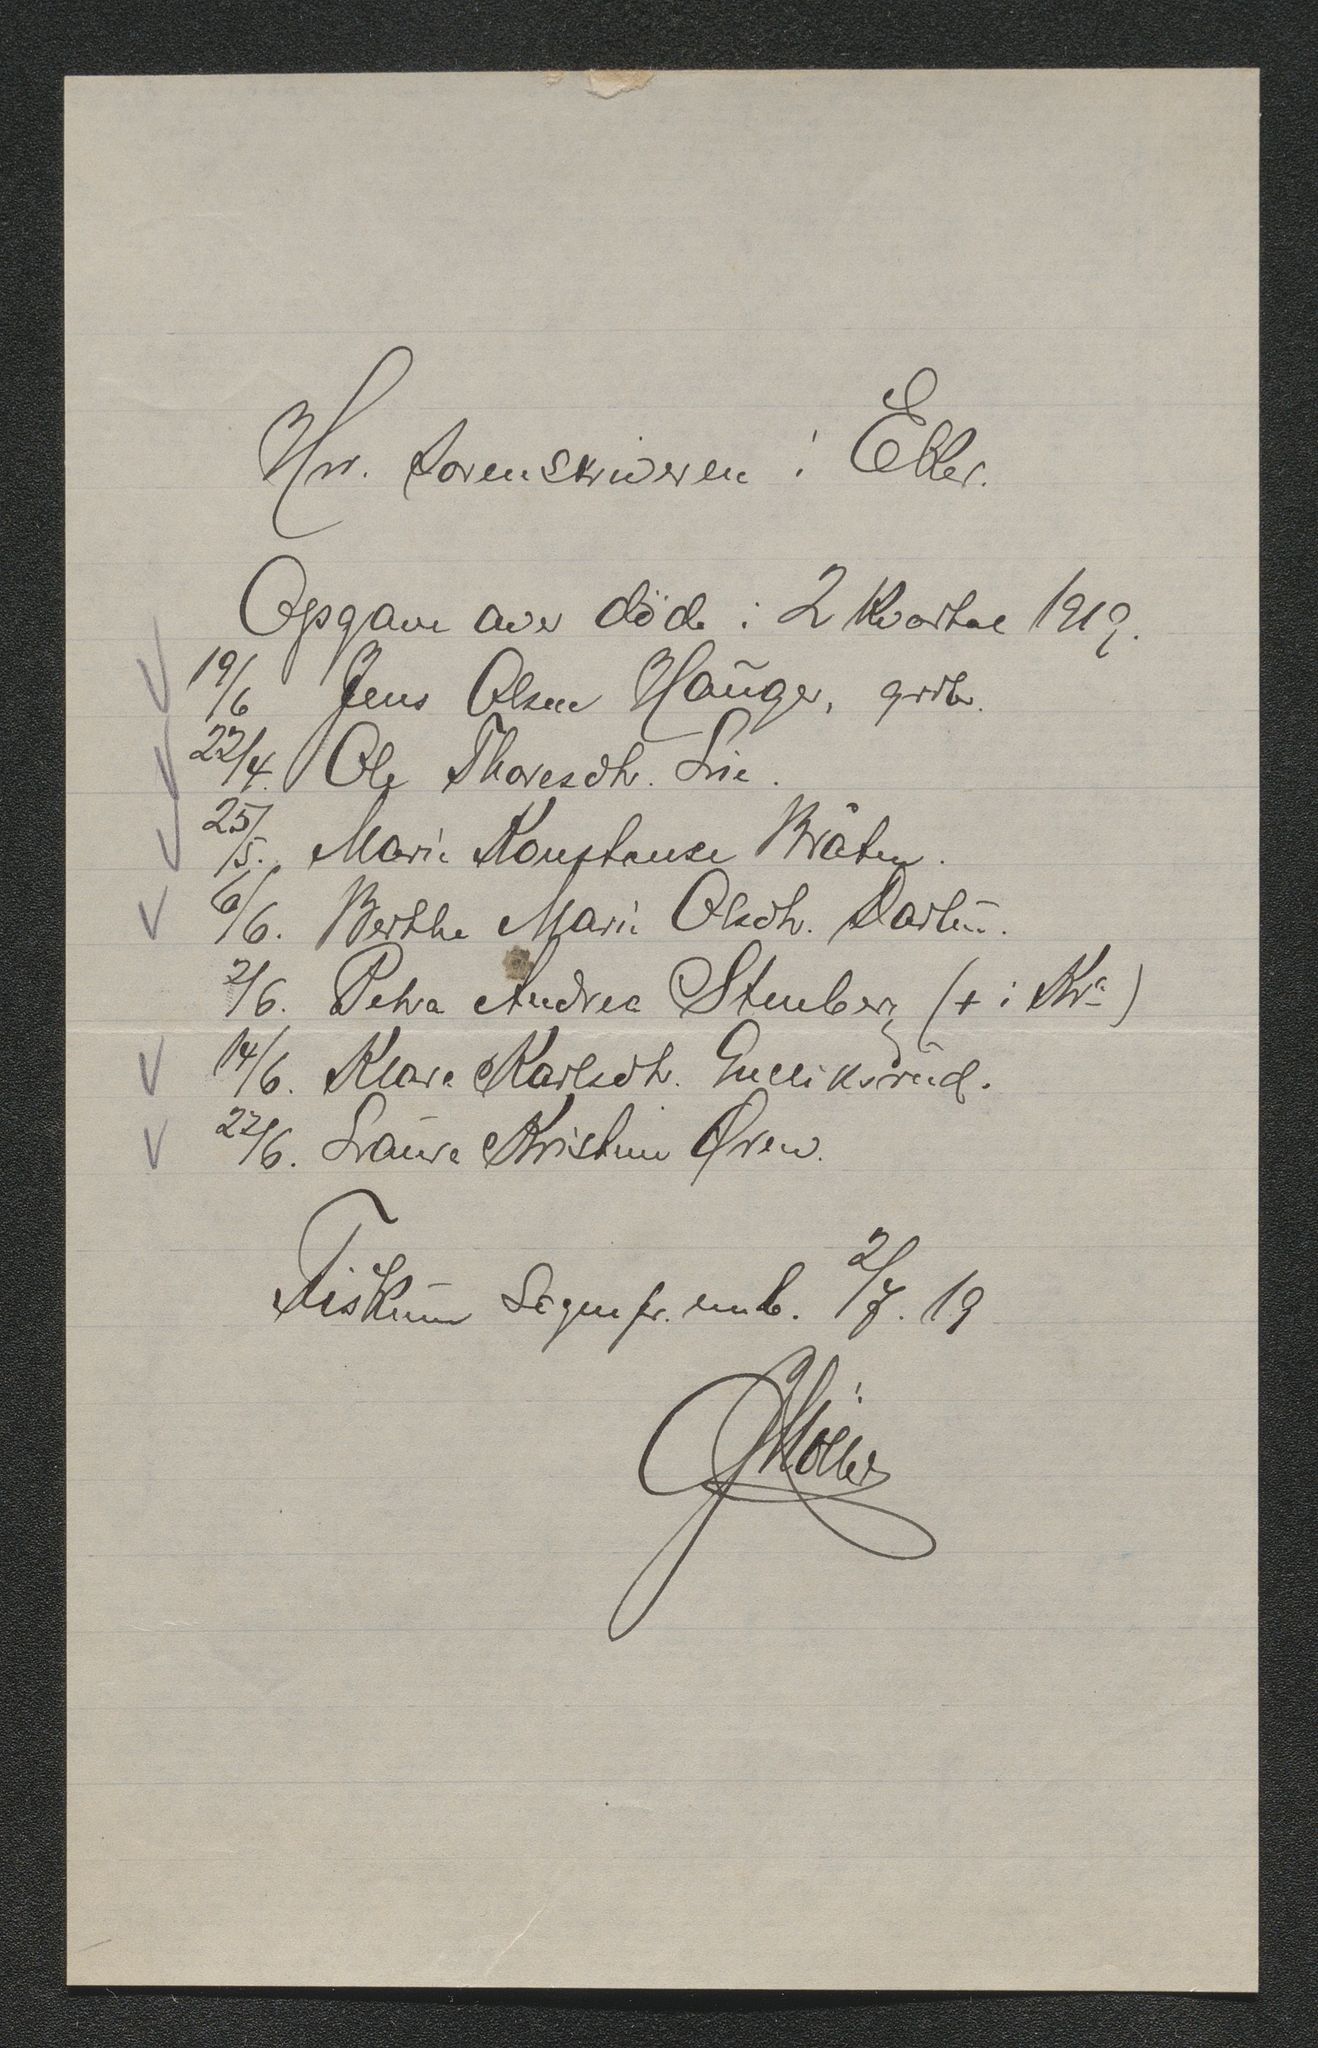 Hr. Sorenskriveren i Eker.
Opgave over døde i 2 Kvartal 1919.
19/6 Jens Olsen Hauger, grdbr.
22/4. Ole Thoresdtr. Lie.
25/5. Marie Konstanse Bråten.
6/6. Berthe Marie Olsdtr. Darbu.
2/6. Petra Andrea Stenberg (+ i Kra)
14/6. Klara Karlsdtr. Gulliksrud.
22/6. Laura Kristine Øren.
Fiskum Sognepr. emb. 2/7. 19
Møller